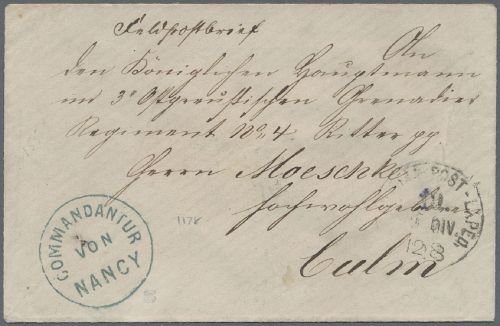 Feldpostbrief
An
den Königlichen Hauptmann
im 3n Ostpreußischen Grenadier
Regiment No 4. Ritter pp
Herrn Maeschke
Hochwohlgeboren
Culm
COMMANDANTUR
VON
NANCY
1178
POST-EXPED.
DIV.
12 8